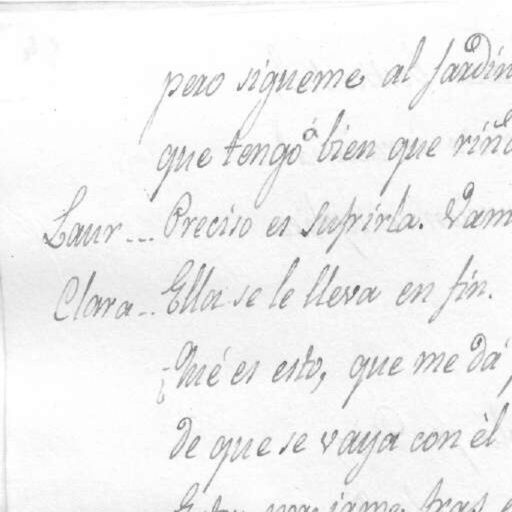 pero sigueme al Jardin
que tengo á bien que riña
Laur... Preciso es sufrirla. Vam
Clara.. Ella se le lleva en fin.
¿Qué es esto, que me dá
de que se vaya con èl